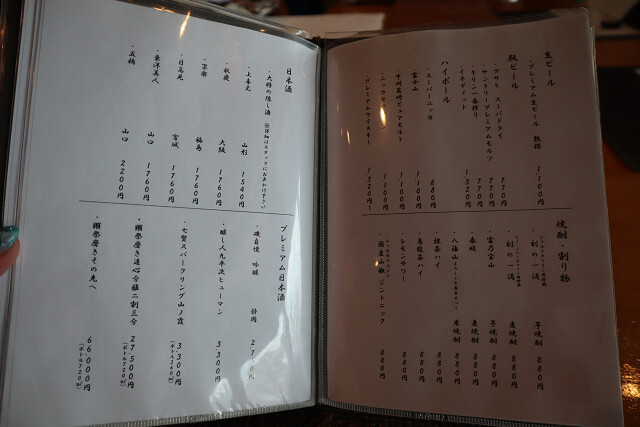 生ビール
・プレミアム生ビール 熟撰 1100円
瓶ビール
・アサヒ スーパードライ 770円
・サントリープレミアムモルツ 770円
・キリン一番搾り 770円
・イネディット 1320円
ハイボール
・スーパーニッカ 880円
・富士山 1100円
・甲州韮崎ピュアモルト 1100円
1100円
・プレミアムウイスキー 1320円〜
焼酎・割り物
・刻の一滴 芋焼酎 880円
・刻の一滴 麦焼酎 880円
・富乃宝山 芋焼酎 880円
麦焼酎 880円
・八海山 米焼酎 880円
・抹茶ハイ 880円
・烏龍茶ハイ 880円
・レモンサワー 880円
・国産山椒 ジントニック 880円
日本酒
・大将の隠し酒
・上喜元 1540円
・秋鹿 大阪 1760円
・写楽 福島 1760円
・日高見 宮城 1760円
・東洋美人 山口 1760円
・五橋 山口 2200円
プレミアム日本酒
・磯自慢 吟醸 静岡
・醸し人九平次ヒューマン 3300円
・七賢スパークリング山ノ霞 3300円
(ボトル360㎖)
・獺祭磨き遠心分離二割三分 27500円
(ボトル720㎖)
・獺祭磨きその先へ 66,000円
(ボトル720㎖)